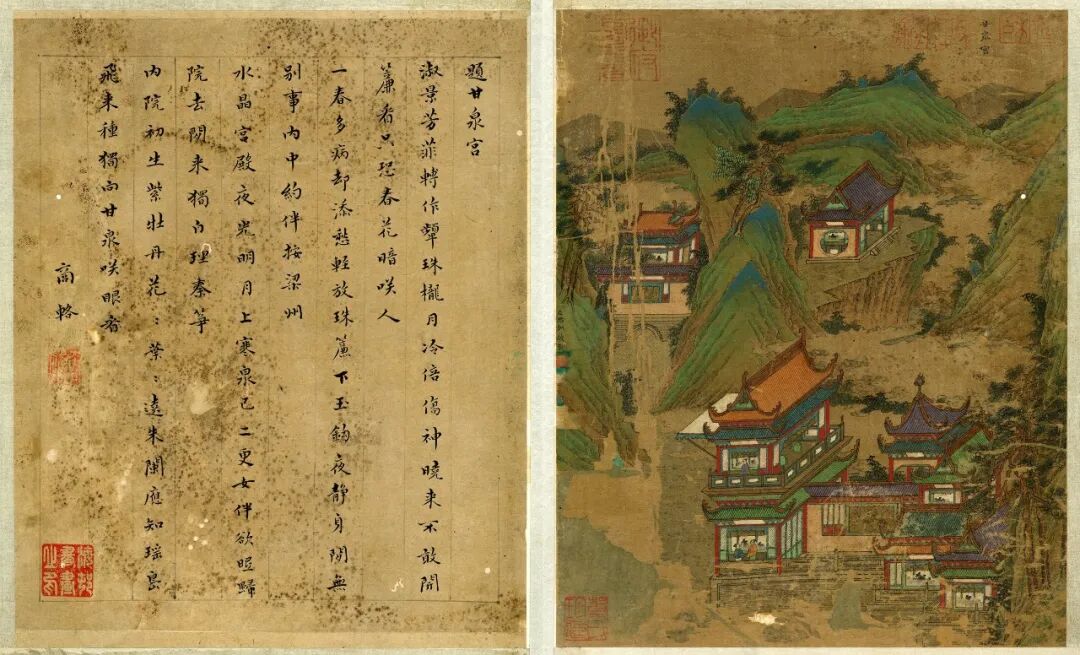 題甘泉宮
淑景芳菲轉作顰珠櫳月冷倍傷神曉來不敢開
簾看只恐春花暗咲人
一春多病却添愁輕放珠簾下玉鈎夜靜身閒無
別事內中約伴按梁州
水晶宮殿夜光明月上寒泉已二更女伴欲眠歸
院去閒來獨自理秦箏
內院初生紫牡丹花〻葉〻遶朱闌應知瑤島
飛來種獨向甘泉咲眼看
商輅
甘泉宮